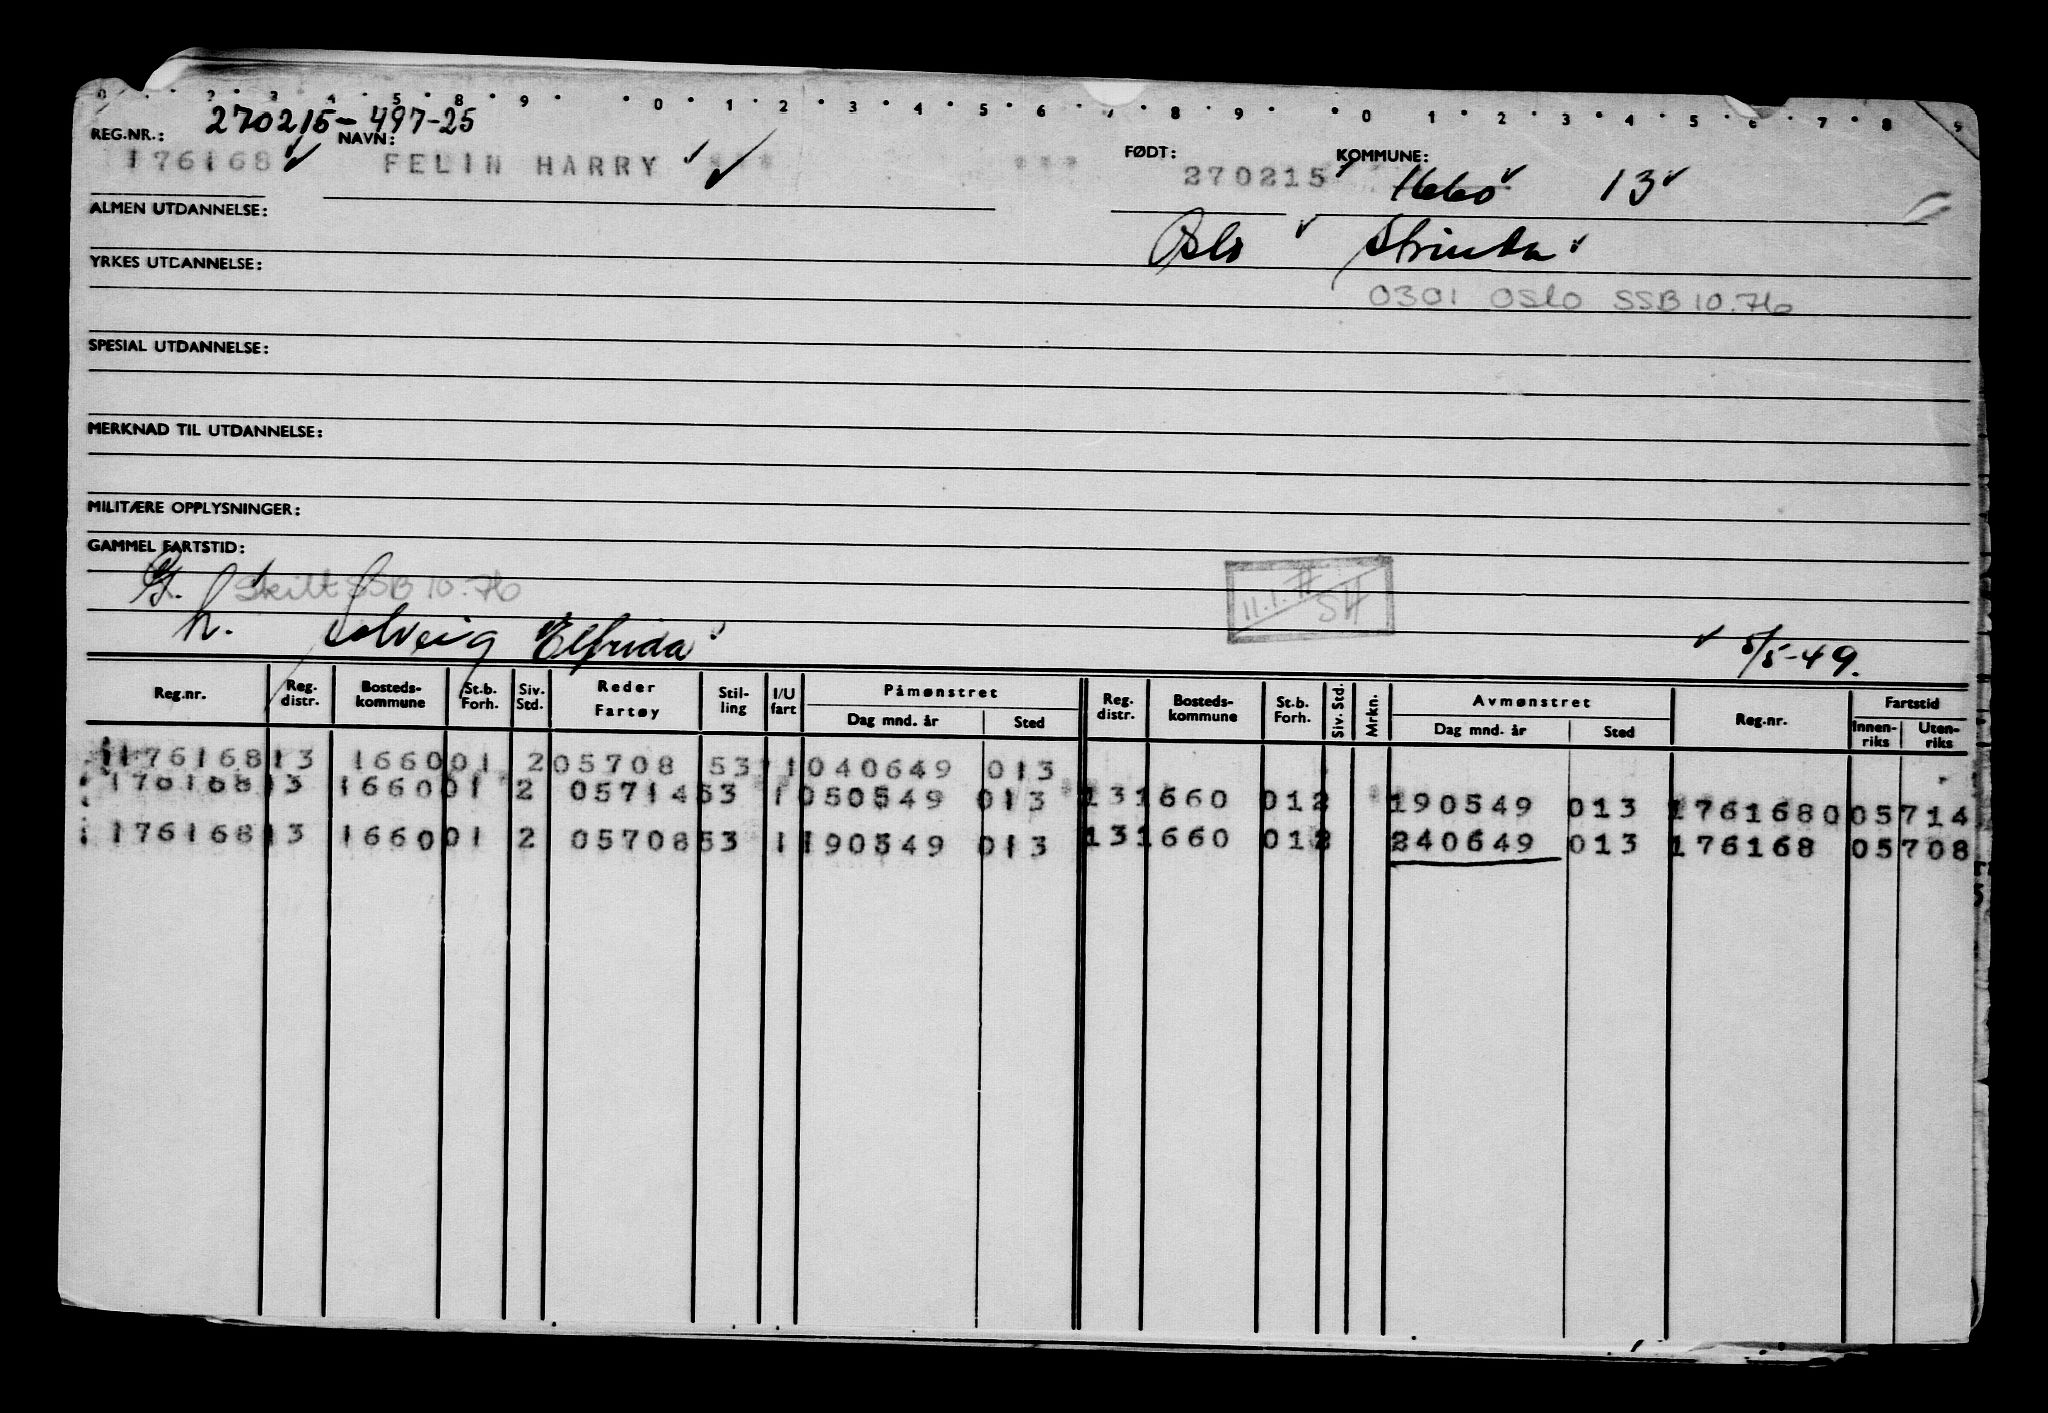 0 . . 2 . 3 4 . 5 . 8 . 9 . . 0 . 1 . 2 . 3 . 4 . 5 . 6 . 7 . 8 . 9 . . 0 . 1 . 2 . 3 . 4 . 5 . 6 . 7 . 8 . 9
270215-497-25
REG.NR.: NAVN: FØDT: KOMMUNE:
176168 FELIN HARRY *** *** 270215 1660 13
ALMEN UTDANNELSE: Oslo Strinda
YRKES UTDANNELSE:
0301 Oslo SSB 10.76
SPESIAL UTDANNELSE:
MERKNAD TIL UTDANNELSE:
MILITÆRE OPPLYSNINGER:
GAMMEL FARTSTID:
Skilt SSB 10.76
11.1.77 SH
h. Solveig Elfrida 5/5-49.
Reg.nr. Reg. distr. Bosteds-kommune St.b. Forh. Siv. Std. Reder Fartøy Stil-ling I/U fart Påmønstret Dag mnd. år Sted Reg. distr. Bosteds-kommune St.b. Forh. Siv. Std. Mrkn. Avmønstret Dag mnd. år Sted Reg.nr. Fartstid Innen-riks Uten-riks
176168 13 1660 01 2 05708 53 1 040649 013
176168 13 1660 01 2 05714 53 1 050549 013 13 1660 01 2 190549 013 176168 0 05714
176168 13 1660 01 2 05708 53 1 190549 013 13 1660 01 2 240649 013 176168 05708